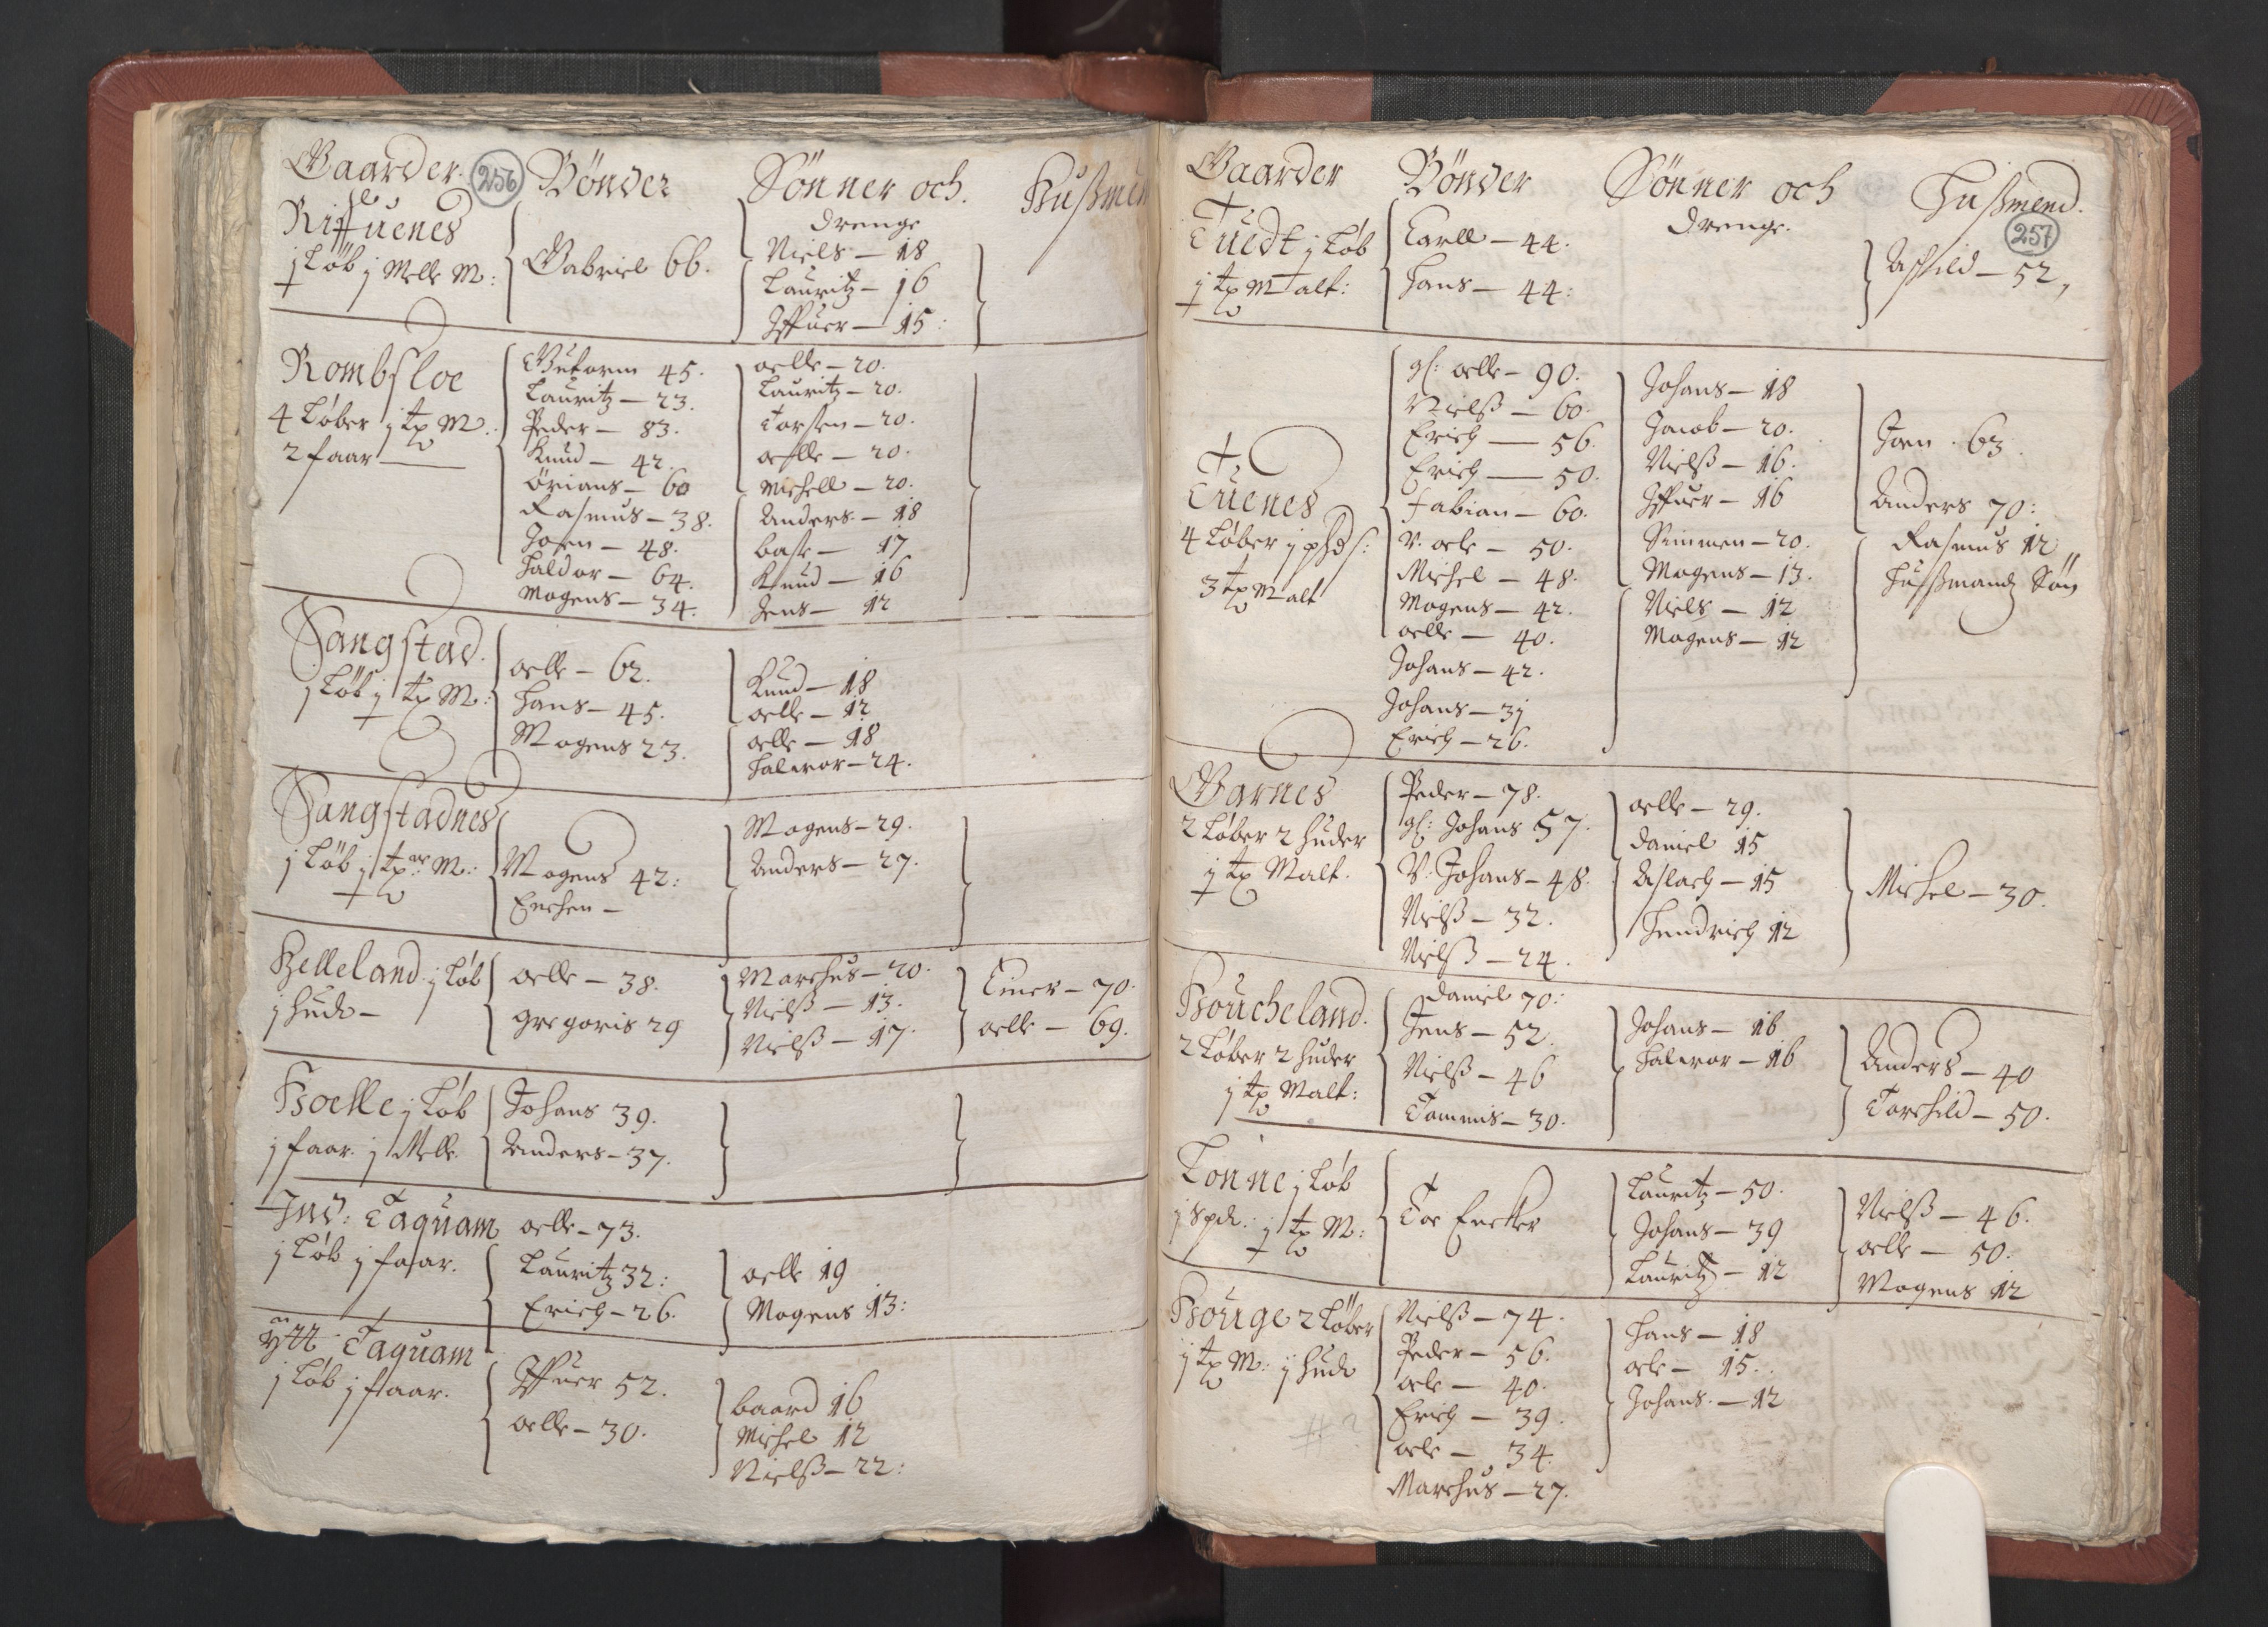 Gaarder. 256 Bönder Sönner och. Hußmen
drenge
Riffuenes
j Løb j Melle M: Gabriel 66. Niels – 18
Lauritz – 16
Iffuer – 15:
Rombsloe
4 Løber j tp M.
2 faar
Gutorm 45.
Lauritz – 23.
Peder – 83.
Knud – 42.
Örians – 60
Rasmus – 38.
Joen – 48.
Haldor – 64.
Mogens – 34.
oelle – 20.
Lauritz – 20.
Torsten – 20.
oelle – 20.
Michell – 20.
Anders – 18
baste – 17
Knud – 16
Jens – 12
Sangstad.
j Løb j tp M:
oelle – 62.
Hans – 45.
Mogens 23.
Knud – 18
oelle – 12
oelle – 18
Haluor – 24.
Sangstadnes
j Løb j tp M:
Mogens 42:
Enchen –
Mogens – 29.
Anders – 27.
Helleland. j Løb
j hud –
oelle – 38.
gregoris 29
Marchus – 20.
Nielß – 13.
Nielß – 17.
Einer – 70.
oelle – 69.
j Løb
j faar. j Melle.
Johans 39.
Anders – 37.
Ind: Taquam
j Løb j faar.
oelle – 73.
Lauritz 32:
Erich – 26.
oelle 19
Mogens 13:
Ytt Taquam
j Løb j faar.
Iffuer 52.
oelle – 30.
baard 16
Michel 12
Nielß – 22:
Gaarder Bönder Sönner och Hußmend.
drenge. 257
Tuedt j Løb
j tp Malt:
Carll – 44.
Hans – 44:
Aschild – 52,
Tuenes
4 Løber j
3 tp Malt
gl: oelle – 90.
Nielß – 60.
Erich – 56.
Erich – 50.
Fabian – 60.
V. oele – 50.
Michel – 48.
Mogens – 42.
oelle – 40.
Johans – 42.
Johans – 31
Erich – 26.
Johans – 18
Jacob – 20.
Nielß – 16.
Iffuer – 16
Simmen – 20.
Mogens – 13.
Niels – 12
Mogens – 12
Joen. 63.
Anders 70:
Rasmus 12
Hußmandz Søn
Garnes
2 Løber 2 huder
j tp Malt.
Peder – 78.
gl: Johans 57.
V. Johans – 48.
Nielß – 32.
Nielß – 24.
oelle – 29.
Daniel 15
Aslach – 15
Hendrich 12
Michel – 30.
Houcheland.
2 Løber 2 huder
j tp Malt:
Daniel 70:
Jens – 52.
Nielß – 46
Tommis – 30.
Johans – 16
Haluor – 16
Anders – 40
Torchild – 50.
Tonne j Løb
j spd. j tp M:
Toe Encker
Lauritz – 50.
Johans – 39
Lauritz – 12
Nielß – 46.
oelle – 50.
Mogens 12
Houge 2 Løber
j tp M: j hud
Nielß – 74.
Peder – 56.
oele – 40.
Erich – 39.
oele – 34.
Marchus – 27.
Hans – 18
oele – 15.
Johans. – 12